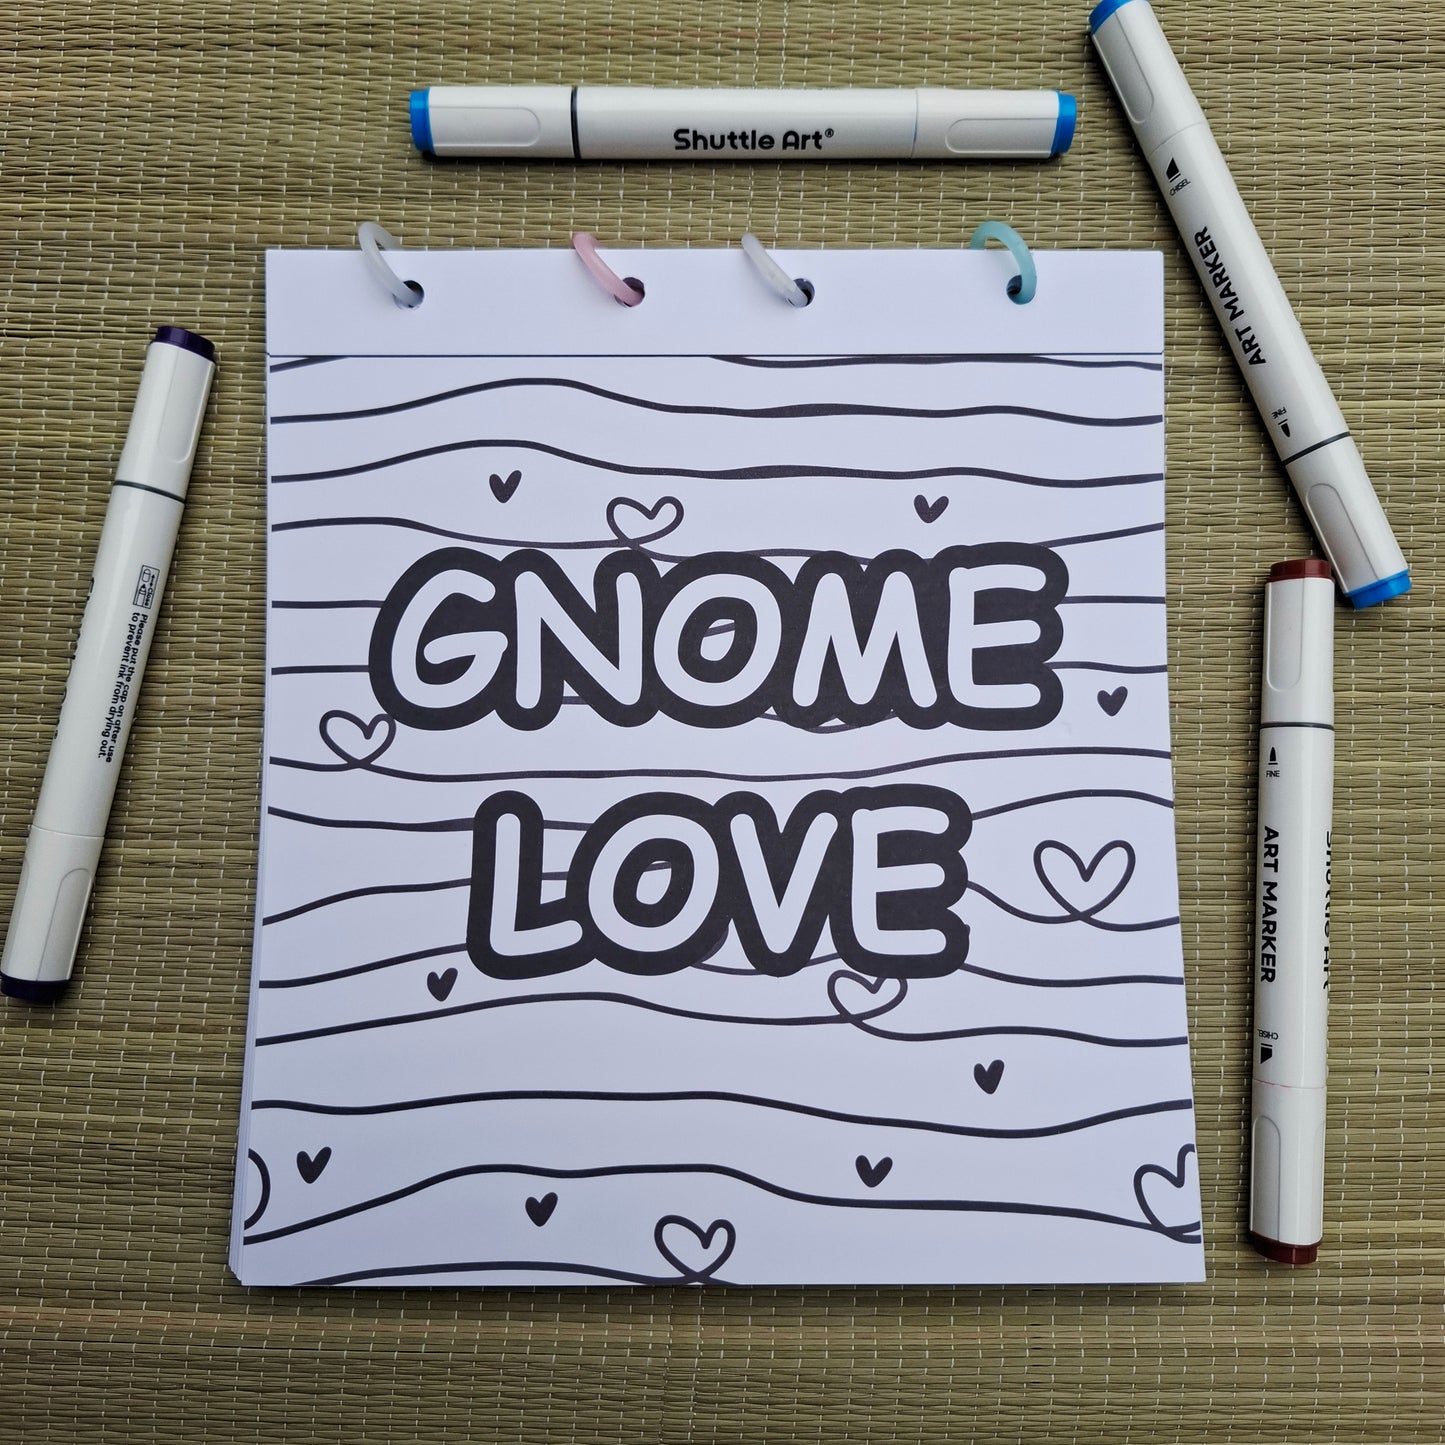 Shuttle Art®
CHISEL
ART MARKER
FINE
GNOME
LOVE
Close
Please put the cap on after use
to prevent ink from drying out.
FINE
Shuttle Art
ART MARKER
CHISEL